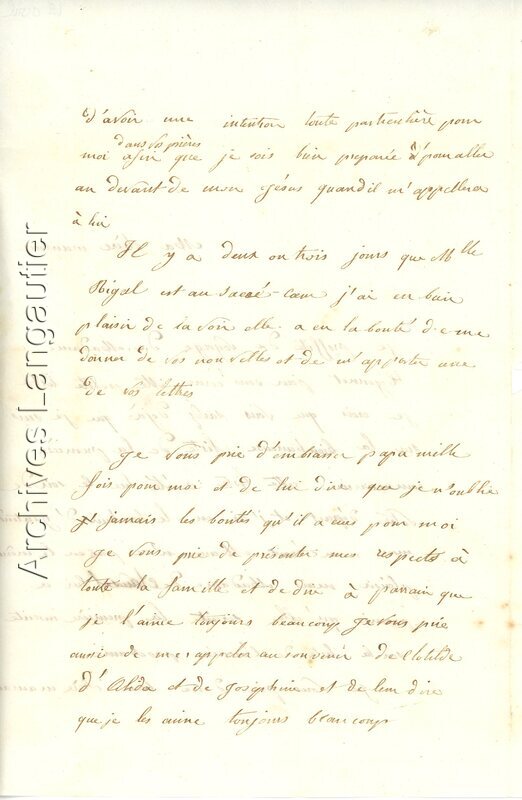 d'avoir une intention toute particulière pour
dans vos prières
moi afin que je sois bien preparée pour aller
au devant de mon jésus quand il m'appellera
à lui
Il y a deux ou trois jours que Mlle
Rigal est au sacré-cœur j'ai eu bien
plaisir de la voir elle a eu la bonté de me
donner de vos nouvelles et de m'apporter une
de vos lettres
je vous prie d'embrasser papa mille
fois pour moi et de lui dire que je n'oublie
jamais les bontés qu'il a eues pour moi
je vous prie de présenter mes respects à
toute la famille et de dire à parain que
je l'aime toujours beaucoup je vous prie
aussi de me rappeler au souvenir de Clotilde
d'Alida et de josephine et de leur dire
que je les aime toujours beaucoup
Archives Langautier